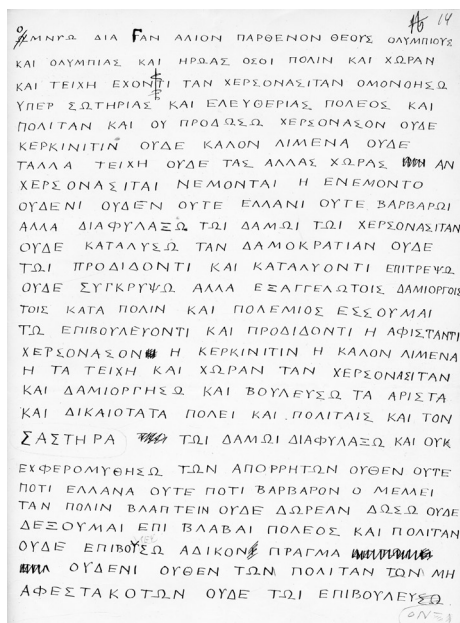 14
ΟΜΝΥΩ ΔΙΑ ΓΑΝ ΑΛΙΟΝ ΠΑΡΘΕΝΟΝ ΘΕΟΥΣ ΟΛΥΜΠΙΟΥΣ
ΚΑΙ ΟΛΥΜΠΙΑΣ ΚΑΙ ΗΡΩΑΣ ΟΣΟΙ ΠΟΛΙΝ ΚΑΙ ΧΩΡΑΝ
ΚΑΙ ΤΕΙΧΗ ΕΧΟΝΤΙ ΤΑΝ ΧΕΡΣΟΝΑΣΙΤΑΝ ΟΜΟΝΟΗΣΩ
ΥΠΕΡ ΣΩΤΗΡΙΑΣ ΚΑΙ ΕΛΕΥΘΕΡΙΑΣ ΠΟΛΕΟΣ ΚΑΙ
ΠΟΛΙΤΑΝ ΚΑΙ ΟΥ ΠΡΟΔΩΣΩ ΧΕΡΣΟΝΑΣΟΝ ΟΥΔΕ
ΚΕΡΚΙΝΙΤΙΝ ΟΥΔΕ ΚΑΛΟΝ ΛΙΜΕΝΑ ΟΥΔΕ
ΤΑΛΛΑ ΤΕΙΧΗ ΟΥΔΕ ΤΑΣ ΑΛΛΑΣ ΧΩΡΑΣ ΑΝ
ΧΕΡΣΟΝΑΣΙΤΑΙ ΝΕΜΟΝΤΑΙ Η ΕΝΕΜΟΝΤΟ
ΟΥΔΕΝΙ ΟΥΔΕΝ ΟΥΤΕ ΕΛΛΑΝΙ ΟΥΤΕ ΒΑΡΒΑΡΩΙ
ΑΛΛΑ ΔΙΑΦΥΛΑΞΩ ΤΩΙ ΔΑΜΩΙ ΤΩΙ ΧΕΡΣΟΝΑΣΙΤΑΝ
ΟΥΔΕ ΚΑΤΑΛΥΣΩ ΤΑΝ ΔΑΜΟΚΡΑΤΙΑΝ ΟΥΔΕ
ΤΩΙ ΠΡΟΔΙΔΟΝΤΙ ΚΑΙ ΚΑΤΑΛΥΟΝΤΙ ΕΠΙΤΡΕΨΩ
ΟΥΔΕ ΣΥΓΚΡΥΨΩ ΑΛΛΑ ΕΞΑΓΓΕΛΩΤΟΙΣ ΔΑΜΙΟΡΓΟΙΣ
ΤΟΙΣ ΚΑΤΑ ΠΟΛΙΝ ΚΑΙ ΠΟΛΕΜΙΟΣ ΕΣΣΟΥΜΑΙ
ΤΩ ΕΠΙΒΟΥΛΕΥΟΝΤΙ ΚΑΙ ΠΡΟΔΙΔΟΝΤΙ Η ΑΦΙΣΤΑΝΤΙ
ΧΕΡΣΟΝΑΣΟΝ Η ΚΕΡΚΙΝΙΤΙΝ Η ΚΑΛΟΝ ΛΙΜΕΝΑ
Η ΤΑ ΤΕΙΧΗ ΚΑΙ ΧΩΡΑΝ ΤΑΝ ΧΕΡΣΟΝΑΣΙΤΑΝ
ΚΑΙ ΔΑΜΙΟΡΓΗΣΩ ΚΑΙ ΒΟΥΛΕΥΣΩ ΤΑ ΑΡΙΣΤΑ
ΚΑΙ ΔΙΚΑΙΟΤΑΤΑ ΠΟΛΕΙ ΚΑΙ ΠΟΛΙΤΑΙΣ ΚΑΙ ΤΟΝ
ΣΑΣΤΗΡΑ ΤΩΙ ΔΑΜΩΙ ΔΙΑΦΥΛΑΞΩ ΚΑΙ ΟΥΚ
ΕΧΦΕΡΟΜΥΘΗΣΩ ΤΩΝ ΑΠΟΡΡΗΤΩΝ ΟΥΘΕΝ ΟΥΤΕ
ΠΟΤΙ ΕΛΛΑΝΑ ΟΥΤΕ ΠΟΤΙ ΒΑΡΒΑΡΟΝ Ο ΜΕΛΛΕΙ
ΤΑΝ ΠΟΛΙΝ ΒΛΑΠΤΕΙΝ ΟΥΔΕ ΔΩΡΕΑΝ ΔΩΣΩ ΟΥΔΕ
ΔΕΞΟΥΜΑΙ ΕΠΙ ΒΛΑΒΑΙ ΠΟΛΕΟΣ ΚΑΙ ΠΟΛΙΤΑΝ
ΟΥΔΕ ΑΔΙΚΟΝ ΠΡΑΓΜΑ
ΟΥΔΕΝΙ ΟΥΘΕΝ ΤΩΝ ΠΟΛΙΤΑΝ ΤΩΝ ΜΗ
ΑΦΕΣΤΑΚΟΤΩΝ ΟΥΔΕ ΤΩΙ ΕΠΙΒΟΥΛΕΥΣΩ